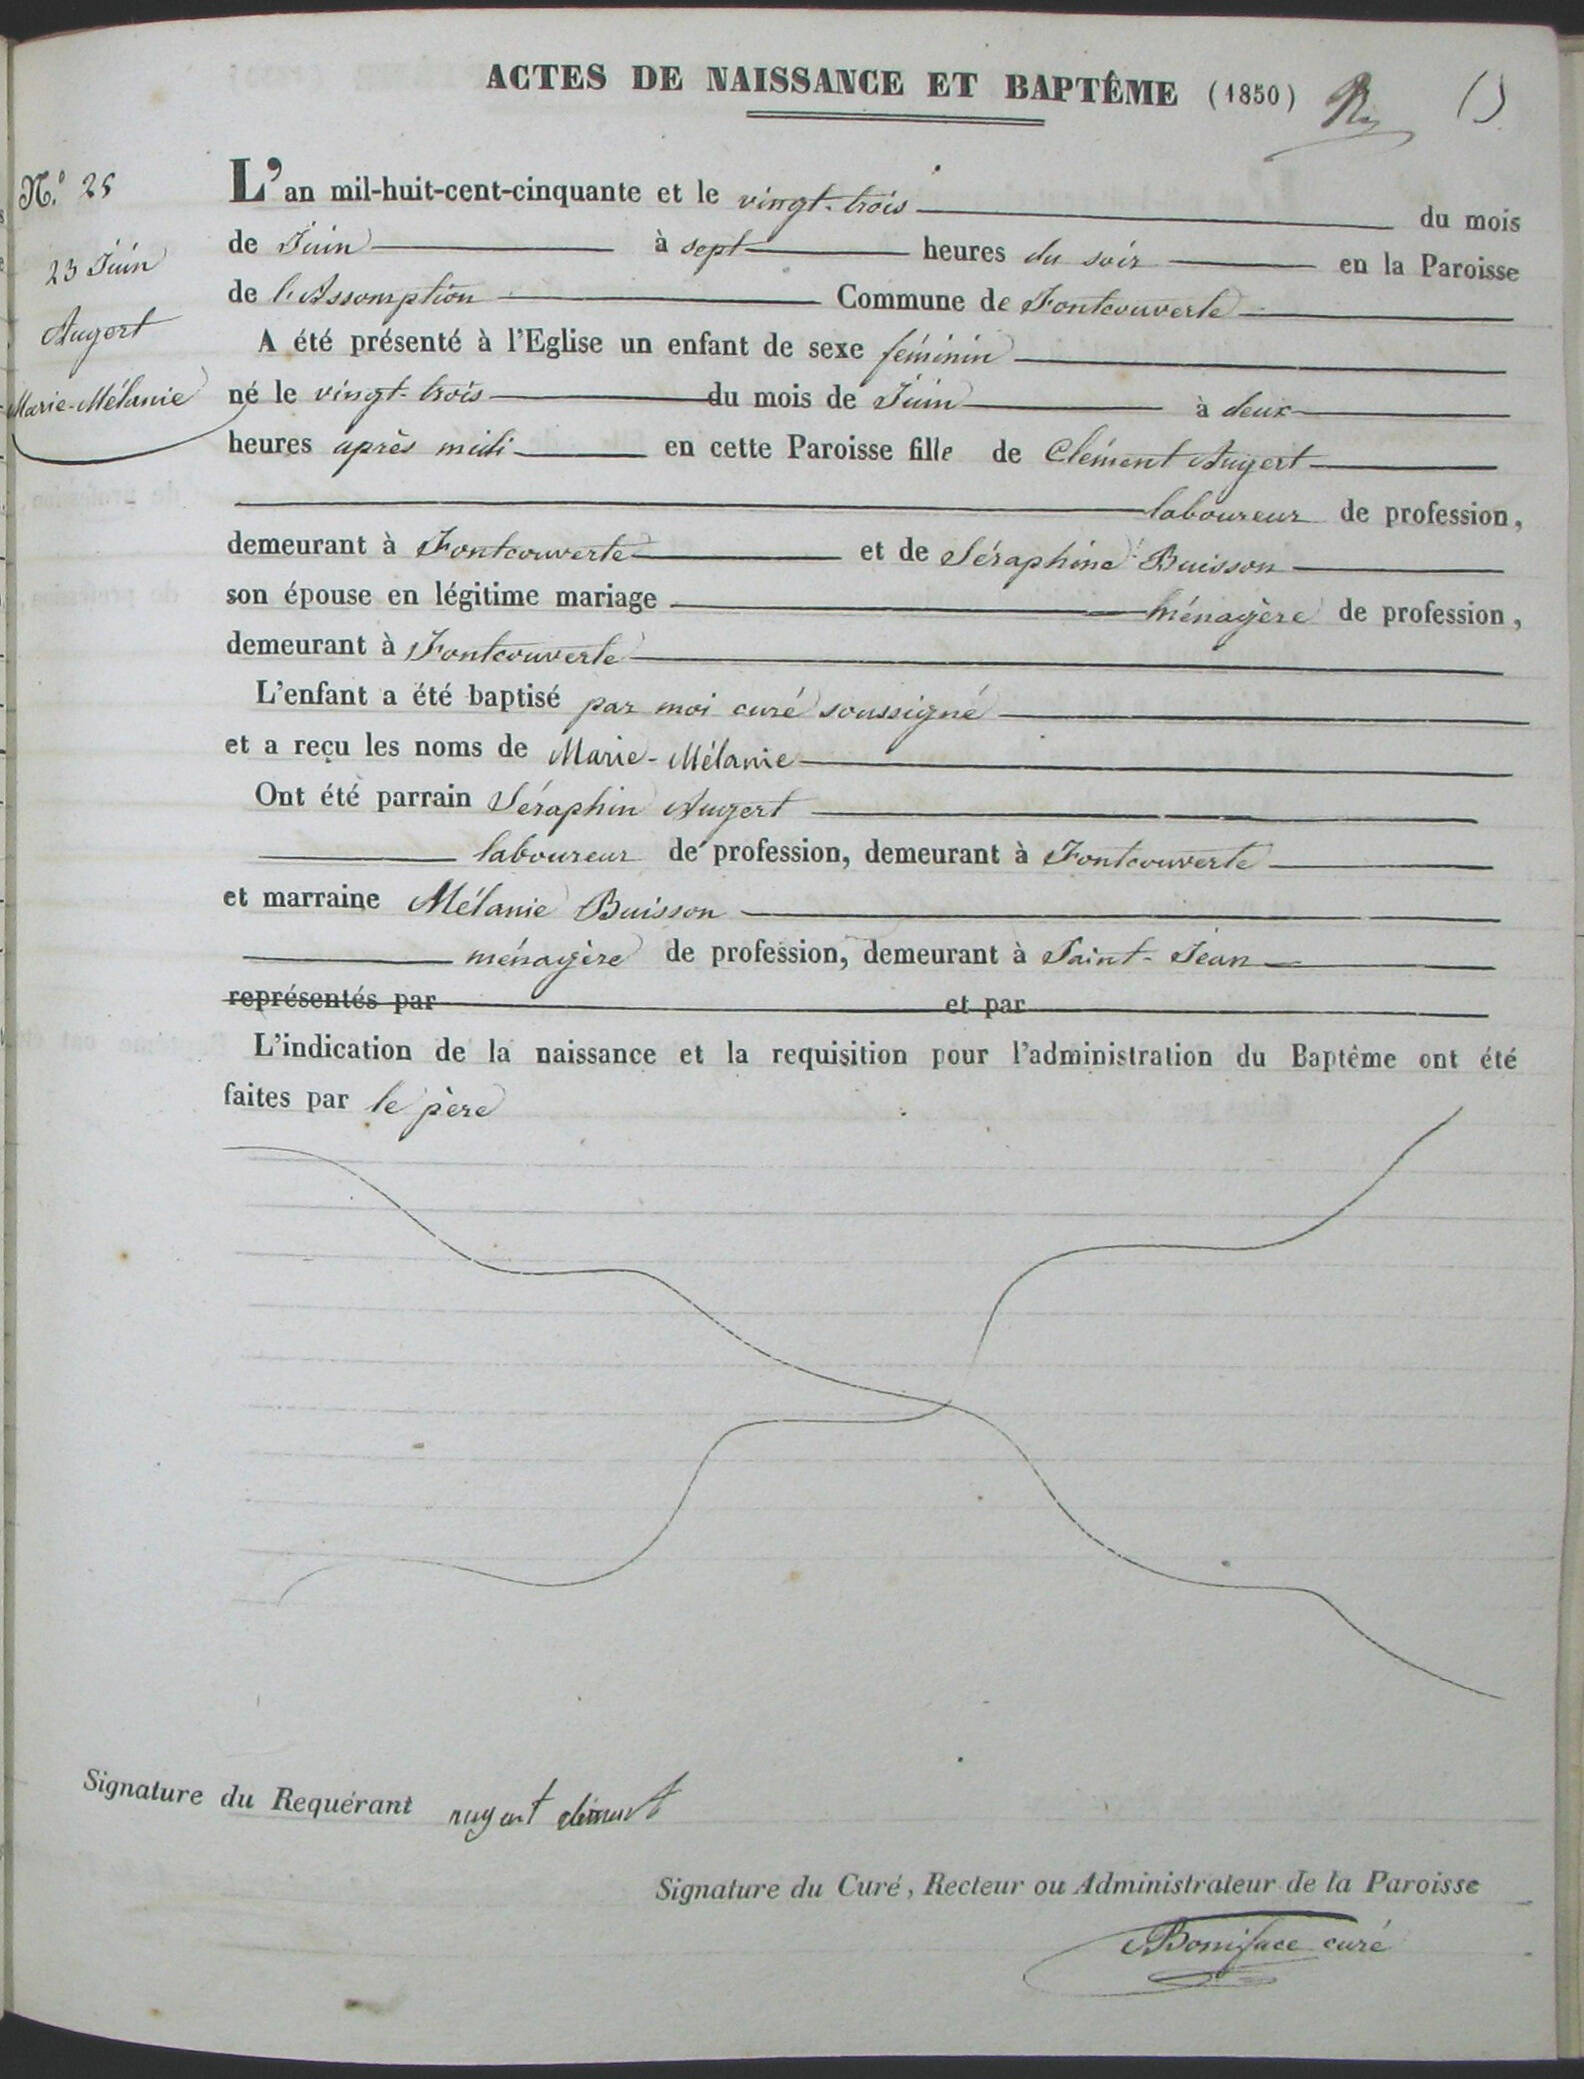 ACTES DE NAISSANCE ET BAPTÊME (1850)
N.º 25
23 Juin
Augert
Marie-Mélanie
L'an mil-huit-cent-cinquante et le vingt-trois du mois
de Juin à sept heures du soir en la Paroisse
de l'Assomption Commune de Fontcouverte
A été présenté à l'Eglise un enfant de sexe féminin
né le vingt-trois du mois de Juin à deux
heures après midi en cette Paroisse fille de Clément Augert
laboureur de profession,
demeurant à Fontcouverte et de Séraphine Buisson
son épouse en légitime mariage ménagère de profession,
demeurant à Fontcouverte
L'enfant a été baptisé par moi curé soussigné
et a reçu les noms de Marie-Mélanie
Ont été parrain Séraphin Augert
laboureur de profession, demeurant à Fontcouverte
et marraine Mélanie Buisson
ménagère de profession, demeurant à Saint-Jean
représentés par et par
L'indication de la naissance et la requisition pour l'administration du Baptême ont été
faites par le père
Signature du Requérant augert clément
Signature du Curé, Recteur ou Administrateur de la Paroisse
Boniface curé